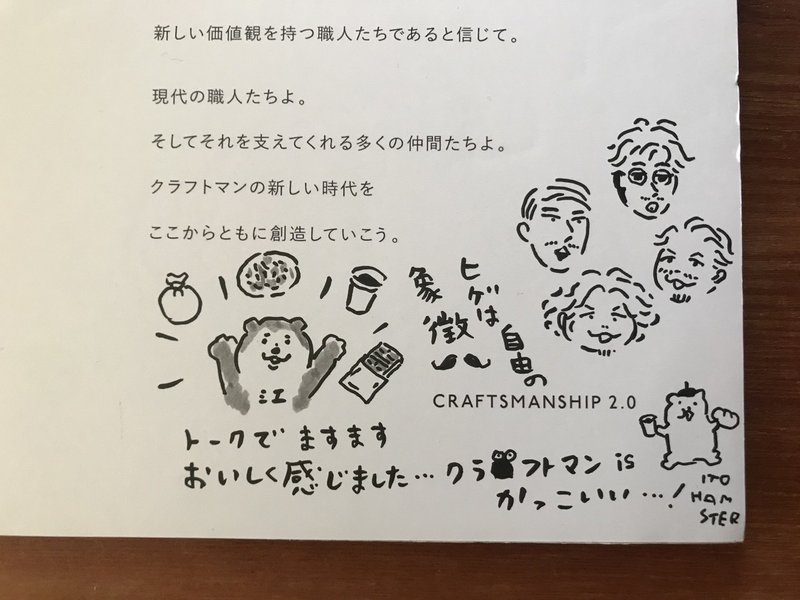 新しい価値観を持つ職人たちであると信じて。
現代の職人たちよ。
そしてそれを支えてくれる多くの仲間たちよ。
クラフトマンの新しい時代を
ここからともに創造していこう。
ヒゲは
自由の
象徴
江
CRAFTSMANSHIP 2.0
トークで ますます
おいしく感じました…クラフトマン is
かっこいい…!
ITO
HAM
STER